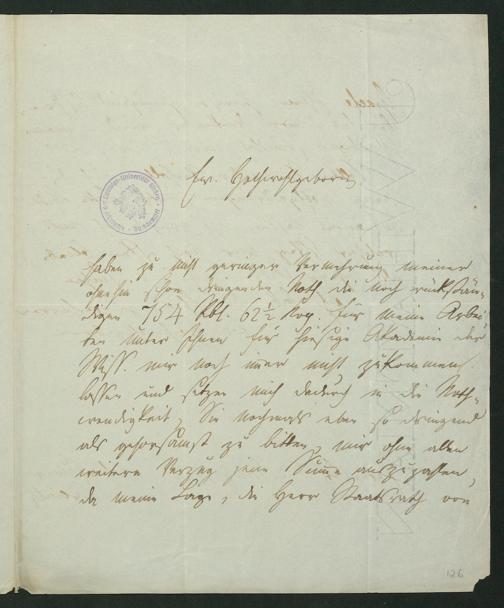 Ew. Hochwohlgeboren
haben zu nicht geringer Vermehrung meiner
ohnehin schon dringenden Noth die noch rückstän-
digen 754 Rbl. 62½ Kop. für meine Arbei-
ten unter Ihnen für hiesige Akademie der
Wiss. mir noch immer nicht zukommen
lassen und setzen mich dadurch in die Noth-
wendigkeit, Sie nochmals eben so dringend
als gehorsamst zu bitten, mir ohne allen
weitern Verzug jene Summe auszuzahlen,
da meine Lage, die Herr Staatsrath von
126